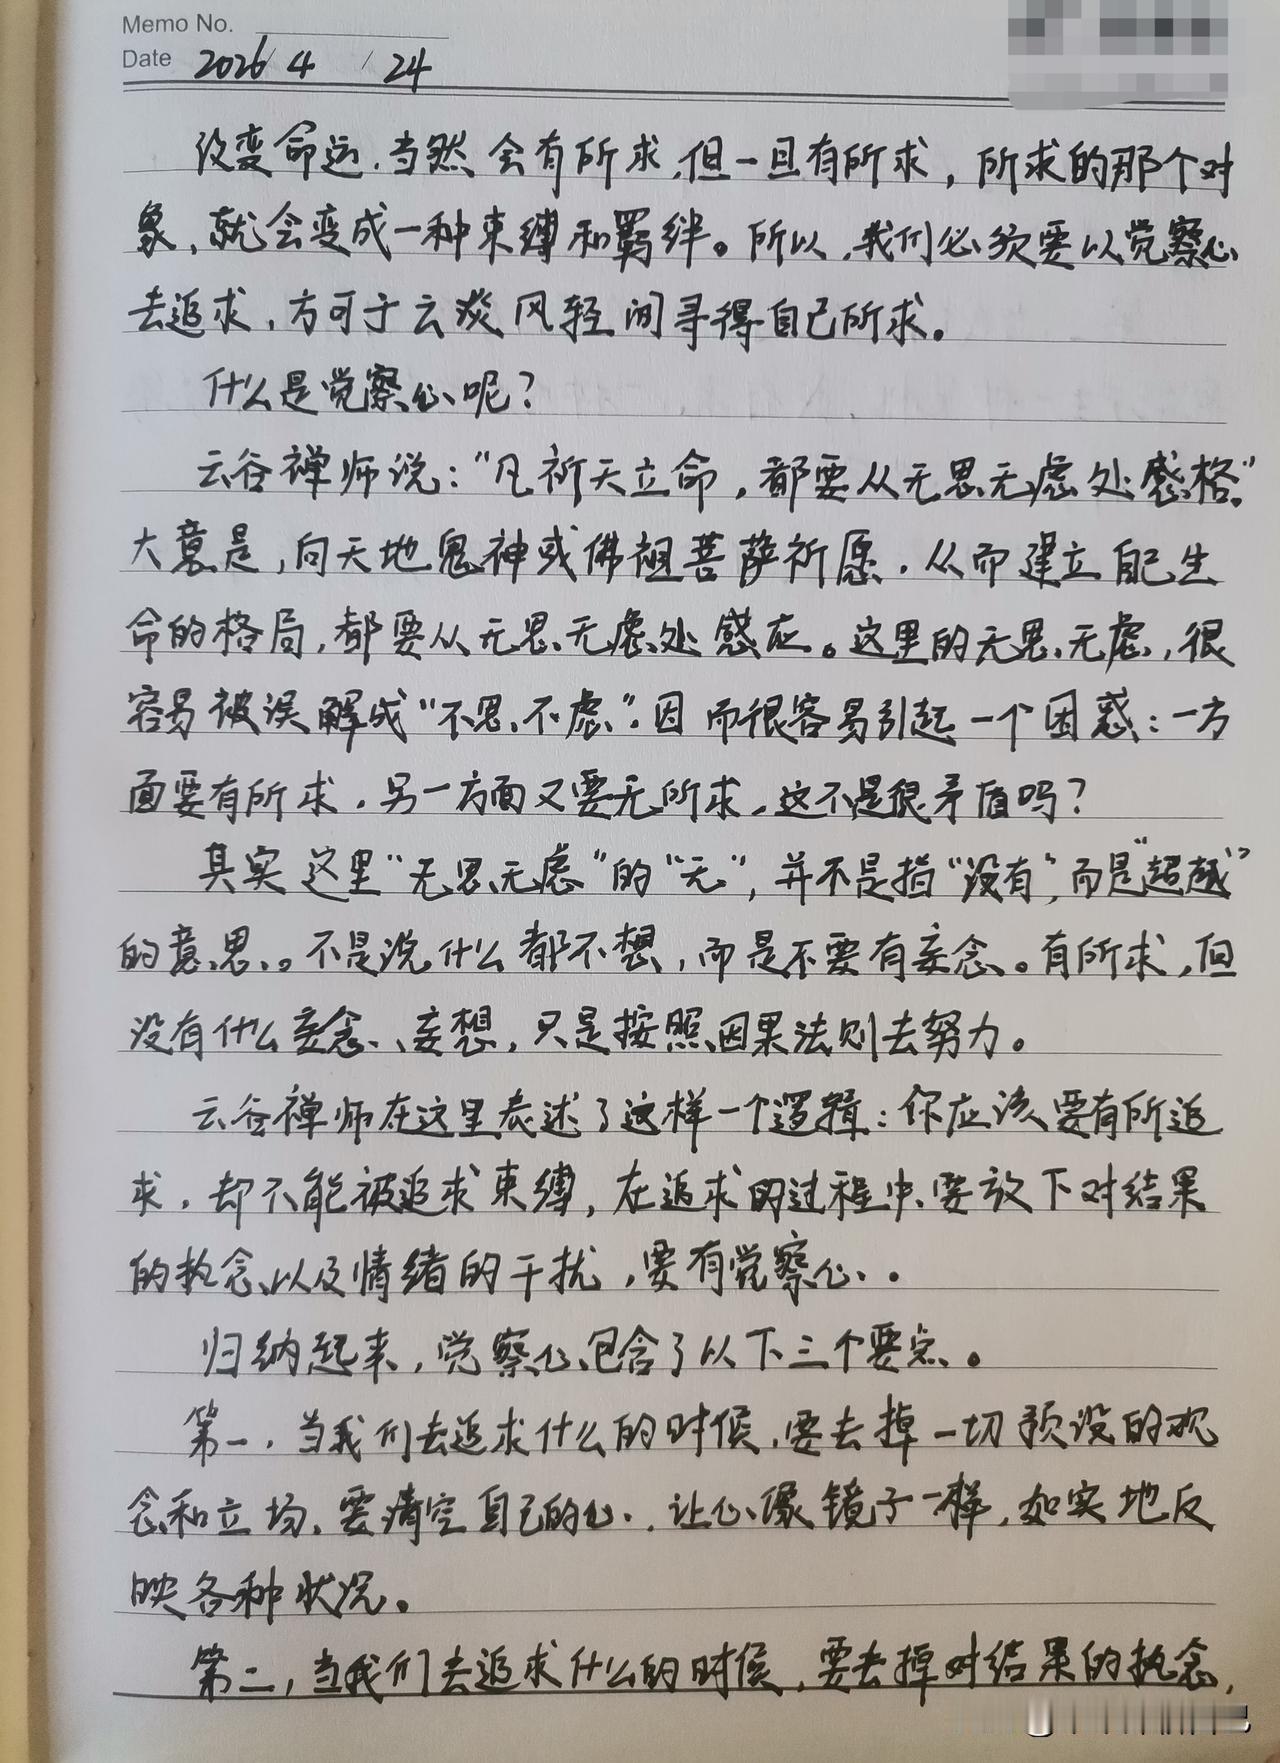 Memo No.
Date 2026 4 / 24
改变命运,当然会有所求,但一旦有所求,所求的那个对
象,就会变成一种束缚和羁绊。所以,我们必须要以觉察心
去追求,方可于云淡风轻间寻得自己所求。
什么是觉察心呢?
云谷禅师说:“凡祈天立命,都要从无思无虑处感格。”
大意是,向天地鬼神或佛祖菩萨祈愿,从而建立自己生
命的格局,都要从无思无虑处感应。这里的无思无虑,很
容易被误解成“不思不虑”,因而很容易引起一个困惑:一方
面要有所求,另一方面又要无所求,这不是很矛盾吗?
其实这里“无思无虑”的“无”,并不是指“没有”,而是“超越”
的意思。不是说什么都不想,而是不要有妄念。有所求,但
没有什么妄念、妄想,只是按照因果法则去努力。
云谷禅师在这里表述了这样一个逻辑:你应该要有所追
求,却不能被追求束缚,在追求的过程中,要放下对结果
的执念以及情绪的干扰,要有觉察心。
归纳起来,觉察心包含了以下三个要点。
第一,当我们去追求什么的时候,要去掉一切预设的观
念和立场,要清空自己的心,让心像镜子一样,如实地反
映各种状况。
第二,当我们去追求什么的时候,要去掉对结果的执念,